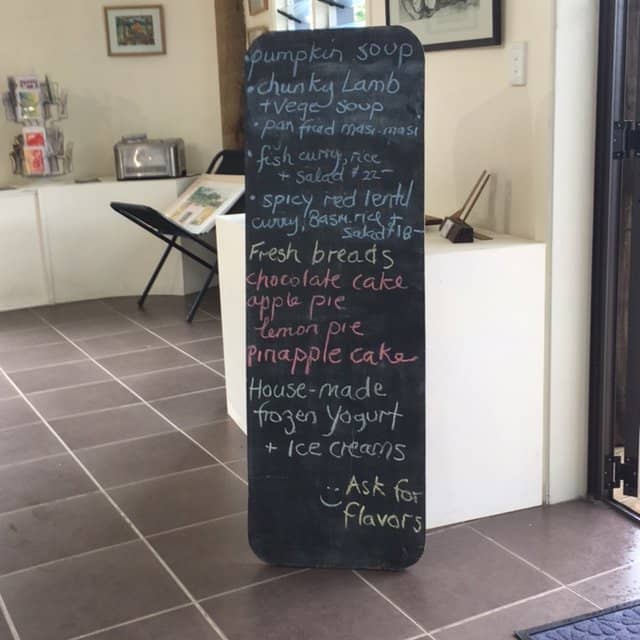 • pumpkin soup
• chunky Lamb
+ Vege soup
• pan fried masi-masi
fish curry, rice
+ salad $22-
• spicy red lentil
curry, Basm. rice +
Salad $18-
Fresh breads
chocolate cake
apple pie
lemon pie
pinapple cake
House-made
frozen Yogurt
+ Ice creams
Ask for
flavors